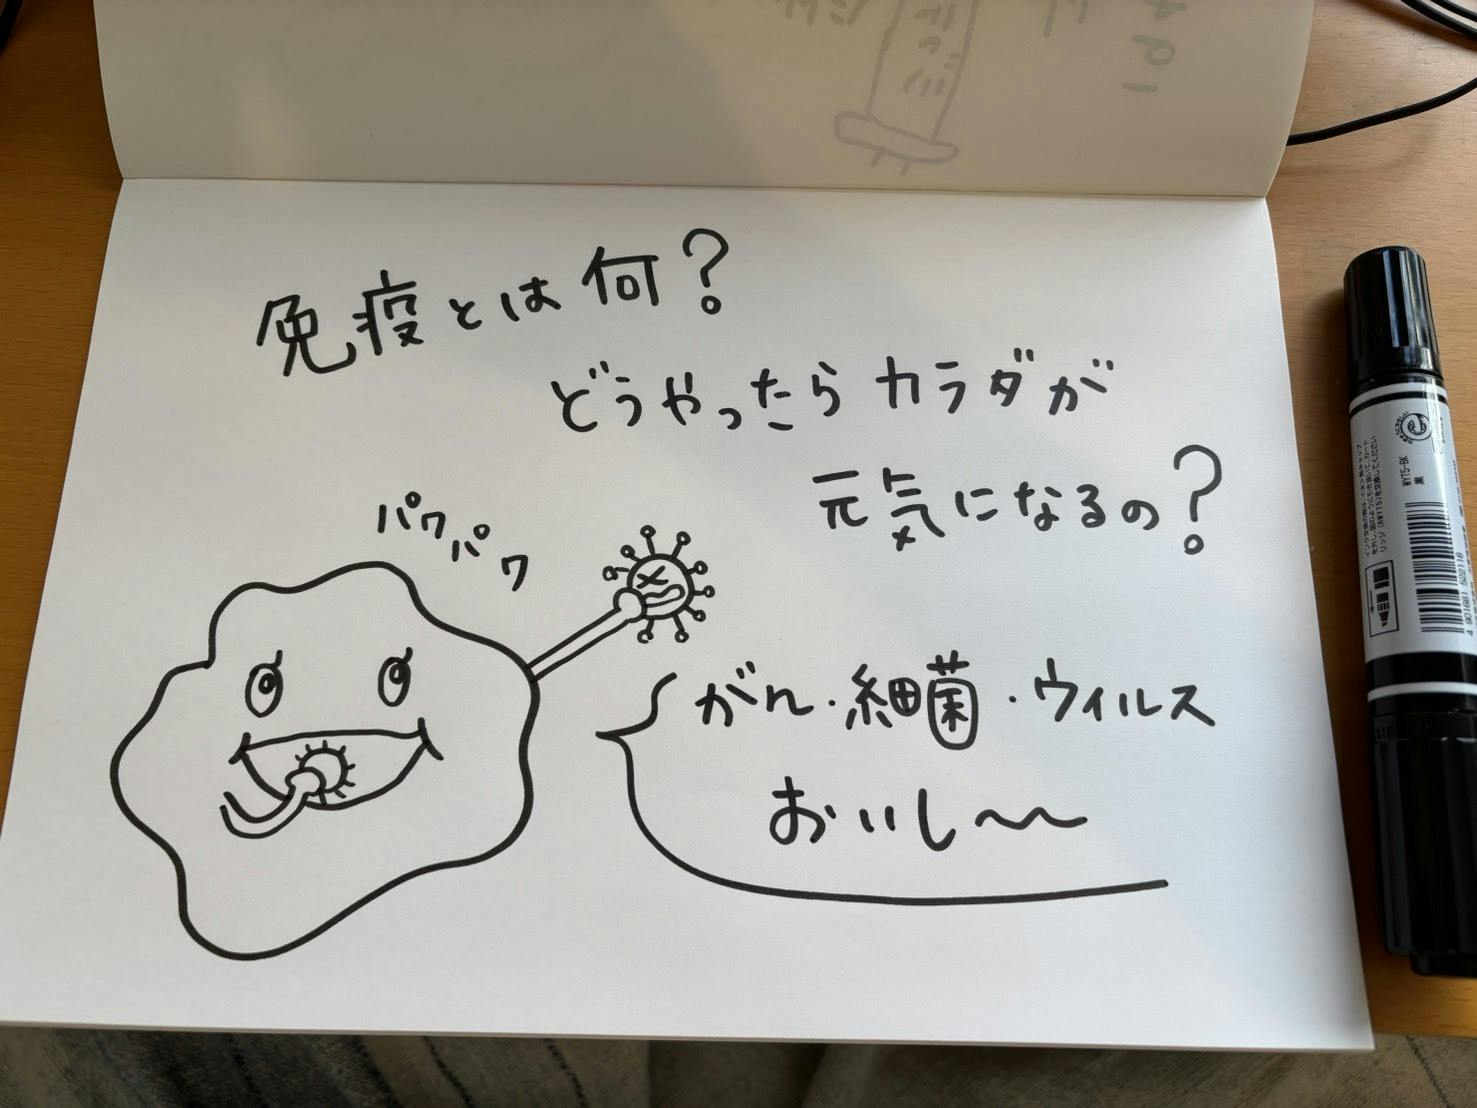 免疫とは何?
どうやったらカラダが
元気になるの?
パクパク
がん・細菌・ウィルス
おいし〜〜
WYT5-BK
黒
4 901681 522118